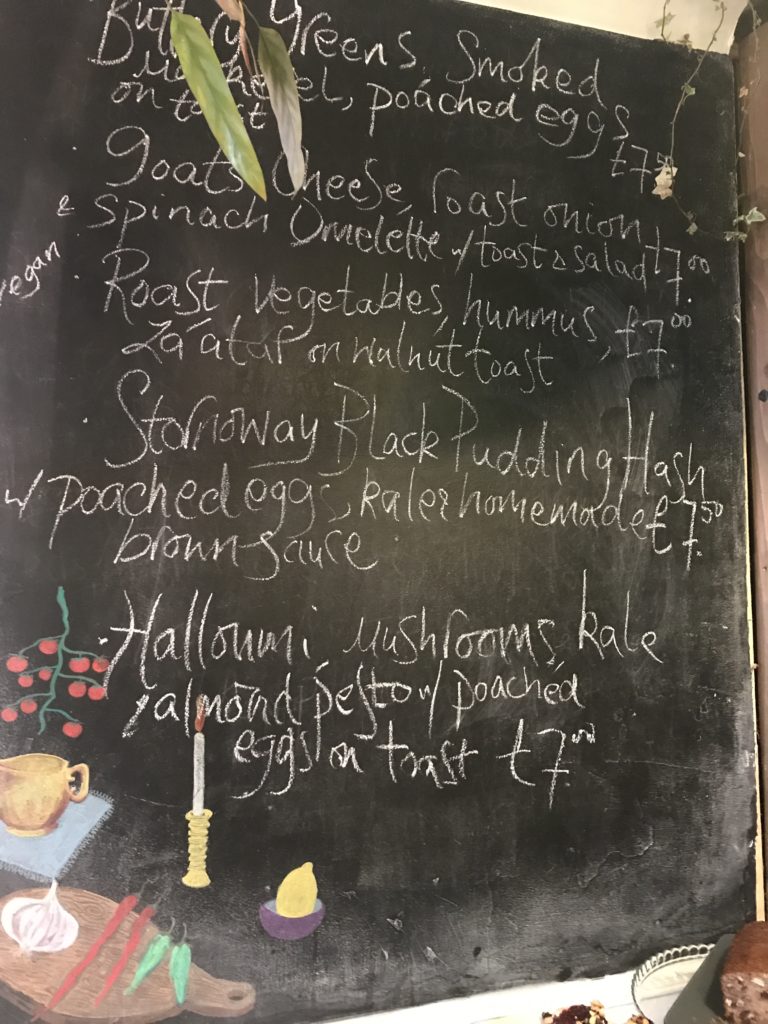 Buttery Greens, Smoked
Mackerel, poached eggs
on toast
£7.50
goats Cheese, roast onion
& spinach Omelette w/ toast & salad £7.00
vegan
Roast vegetables, hummus, £7.00
Za'atar on walnut toast
Stornoway Black Pudding Hash
w/ poached eggs, kale & homemade £7.50
brown sauce
Halloumi, mushrooms, kale
almond pesto w/ poached
eggs on toast £7.00